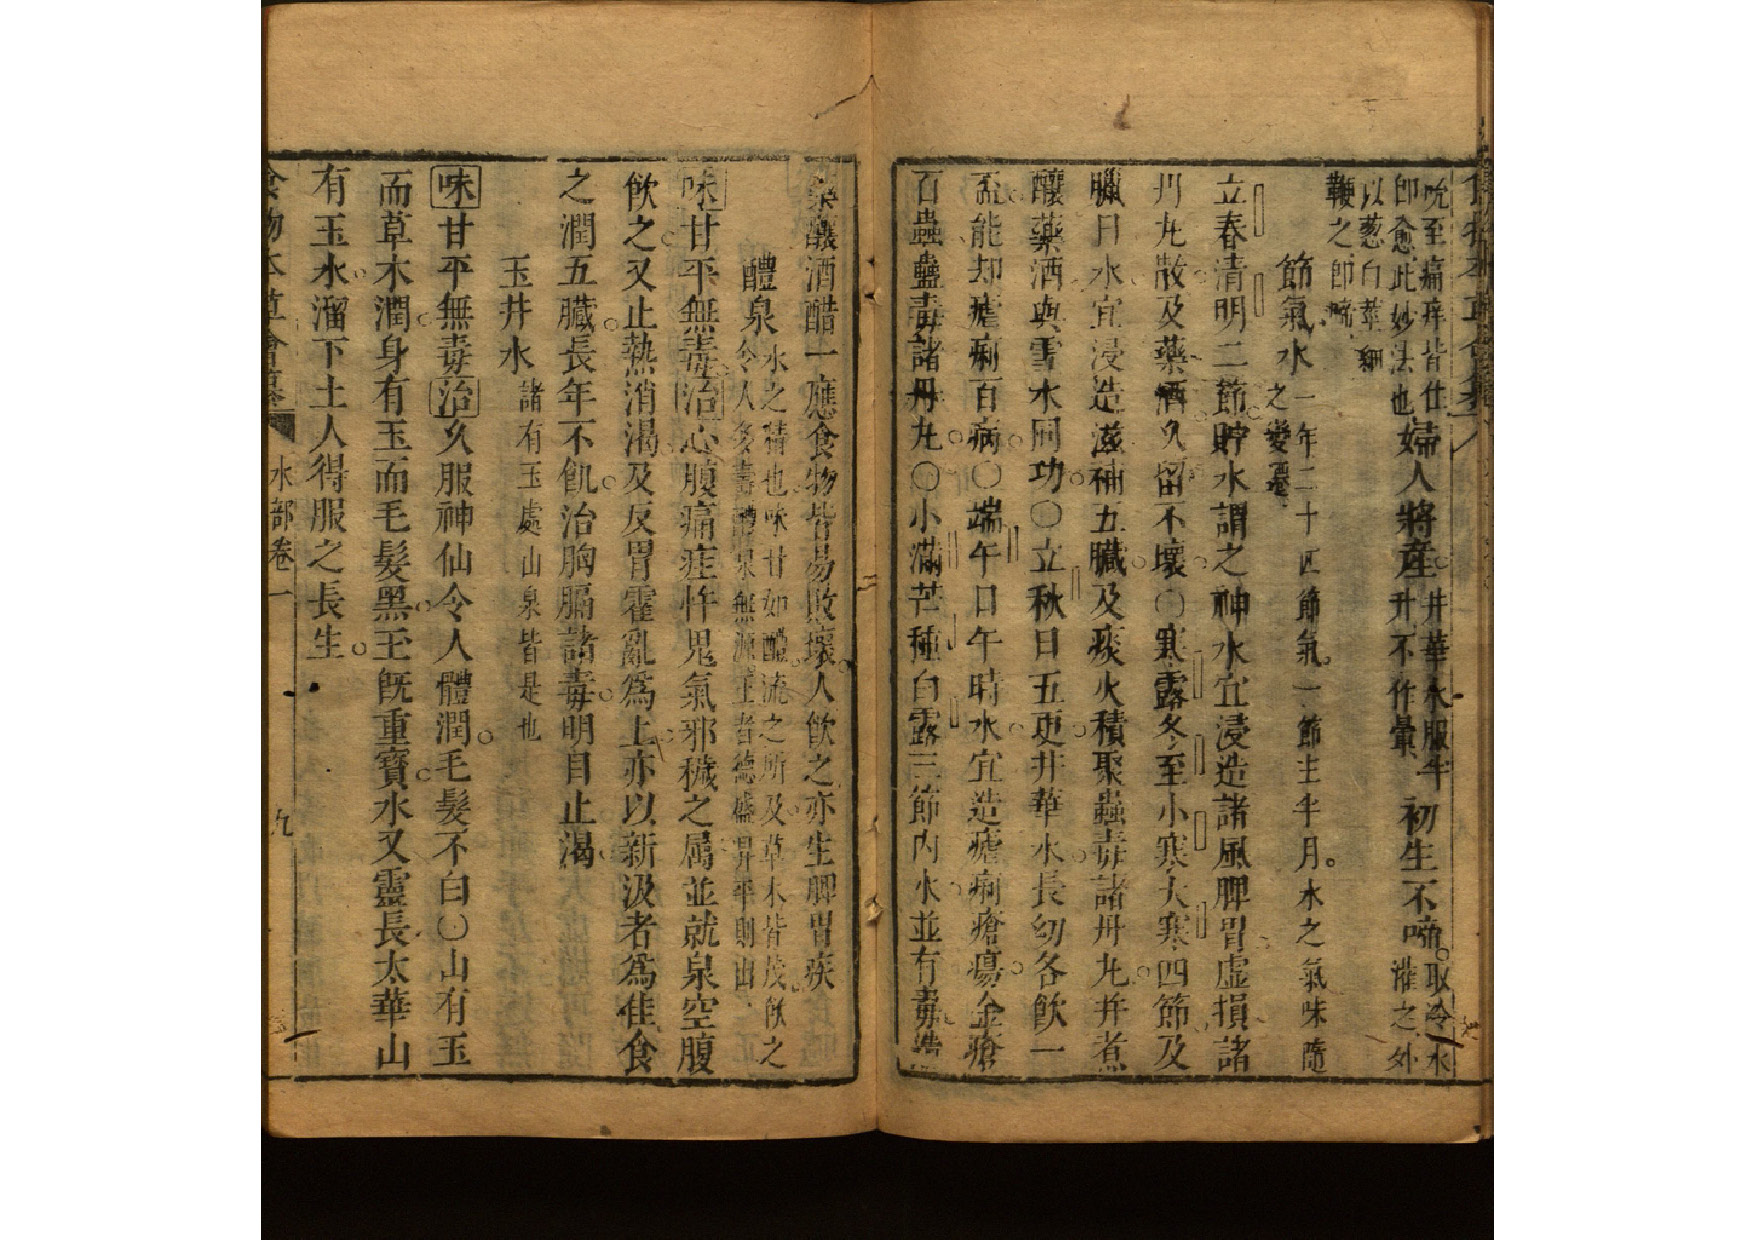 吮至痛痒皆仕婦人將產井華水服半初生不啼取冷水
即愈此妙法也升不作暈灌之外
以葱白莖細
鞭之即啼
節氣水一年二十四節氣一節主半月水之氣味隨
之變遷
立春清明二節貯水謂之神水宜浸造諸風脾胃虛損諸
丹丸散及藥酒久留不壞〇寒露冬至小寒大寒四節及
臘日水宜浸造滋補五臟及痰火積聚蟲毒諸丹丸并煮
釀藥酒與雪水同功〇立秋日五更井華水長幼各飲一
盃能却瘧痢百病〇端午日午時水宜造瘧痢瘡瘍金瘡
百蟲蠱毒諸丹丸〇小滿芒種白露三節內水並有毒造
藥釀酒醋一應食物皆易敗壞人飲之亦生脾胃疾
醴泉水之精也味甘如醴流之所及草木皆茂飲之
令人多壽醴泉無源王者德盛昇平則出
味甘平無毒治心腹痛疰忤鬼氣邪穢之属並就泉空腹
飲之又止熱消渴及反胃霍亂為上亦以新汲者為佳食
之潤五臟長年不飢治胸膈諸毒明目止渴
玉井水諸有玉處山泉皆是也
味甘平無毒治久服神仙令人體潤毛髮不白〇山有玉
而草木潤身有玉而毛髮黑玉既重寶水又靈長太華山
有玉水溜下土人得服之長生
食物本草會纂
水部卷一
九